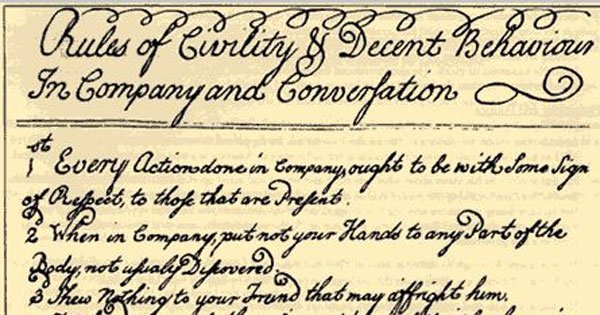 Rules of Civility & Decent Behaviour
In Company and Conversation
1st Every Action done in Company, ought to be with Some Sign
of Respect, to those that are Present.
2d When in Company, put not your Hands to any Part of the
Body, not usualy Discovered.
3 Shew Nothing to your Freind that may affright him.